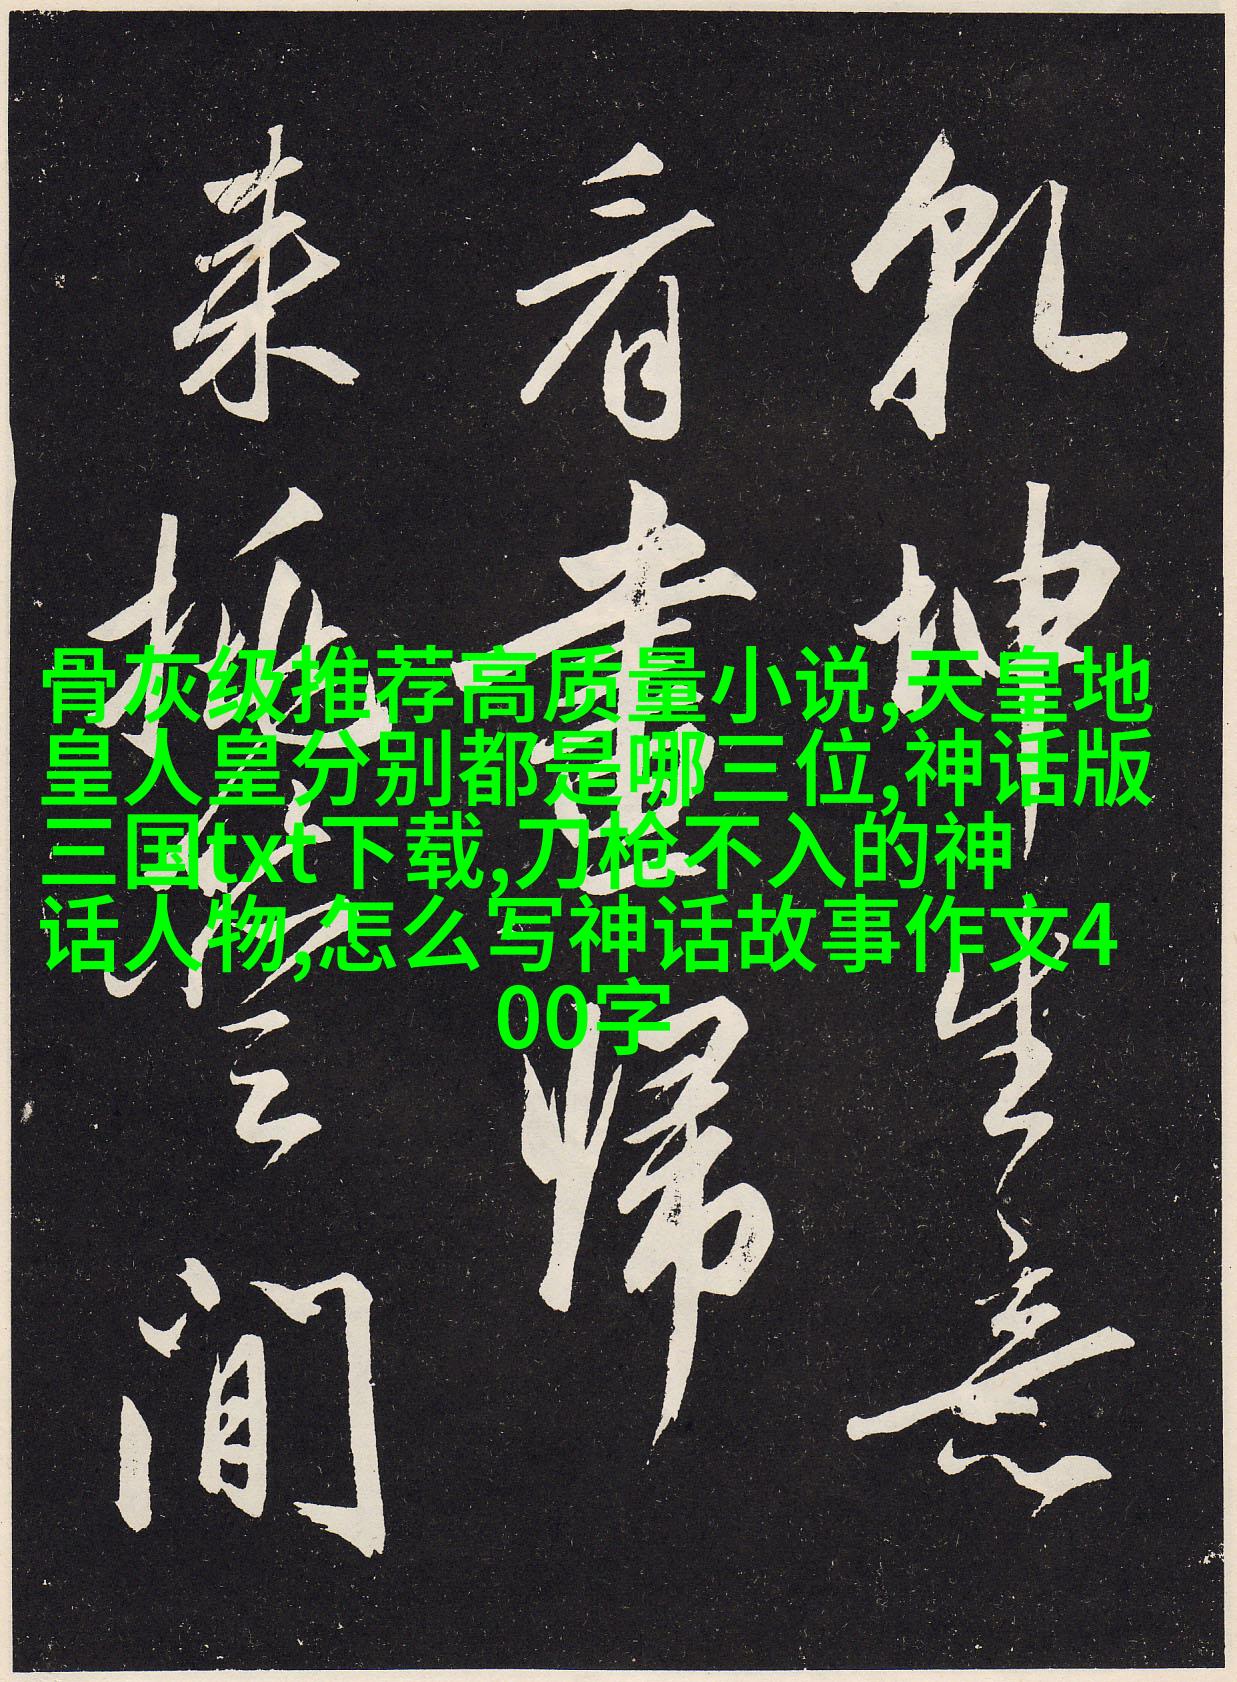 乾坤生意
看畫歸
来雲間
骨灰级推荐高质量小说,天皇地
皇人皇分别都是哪三位,神话版
三国txt下载,刀枪不入的神
话人物,怎么写神话故事作文4
00字